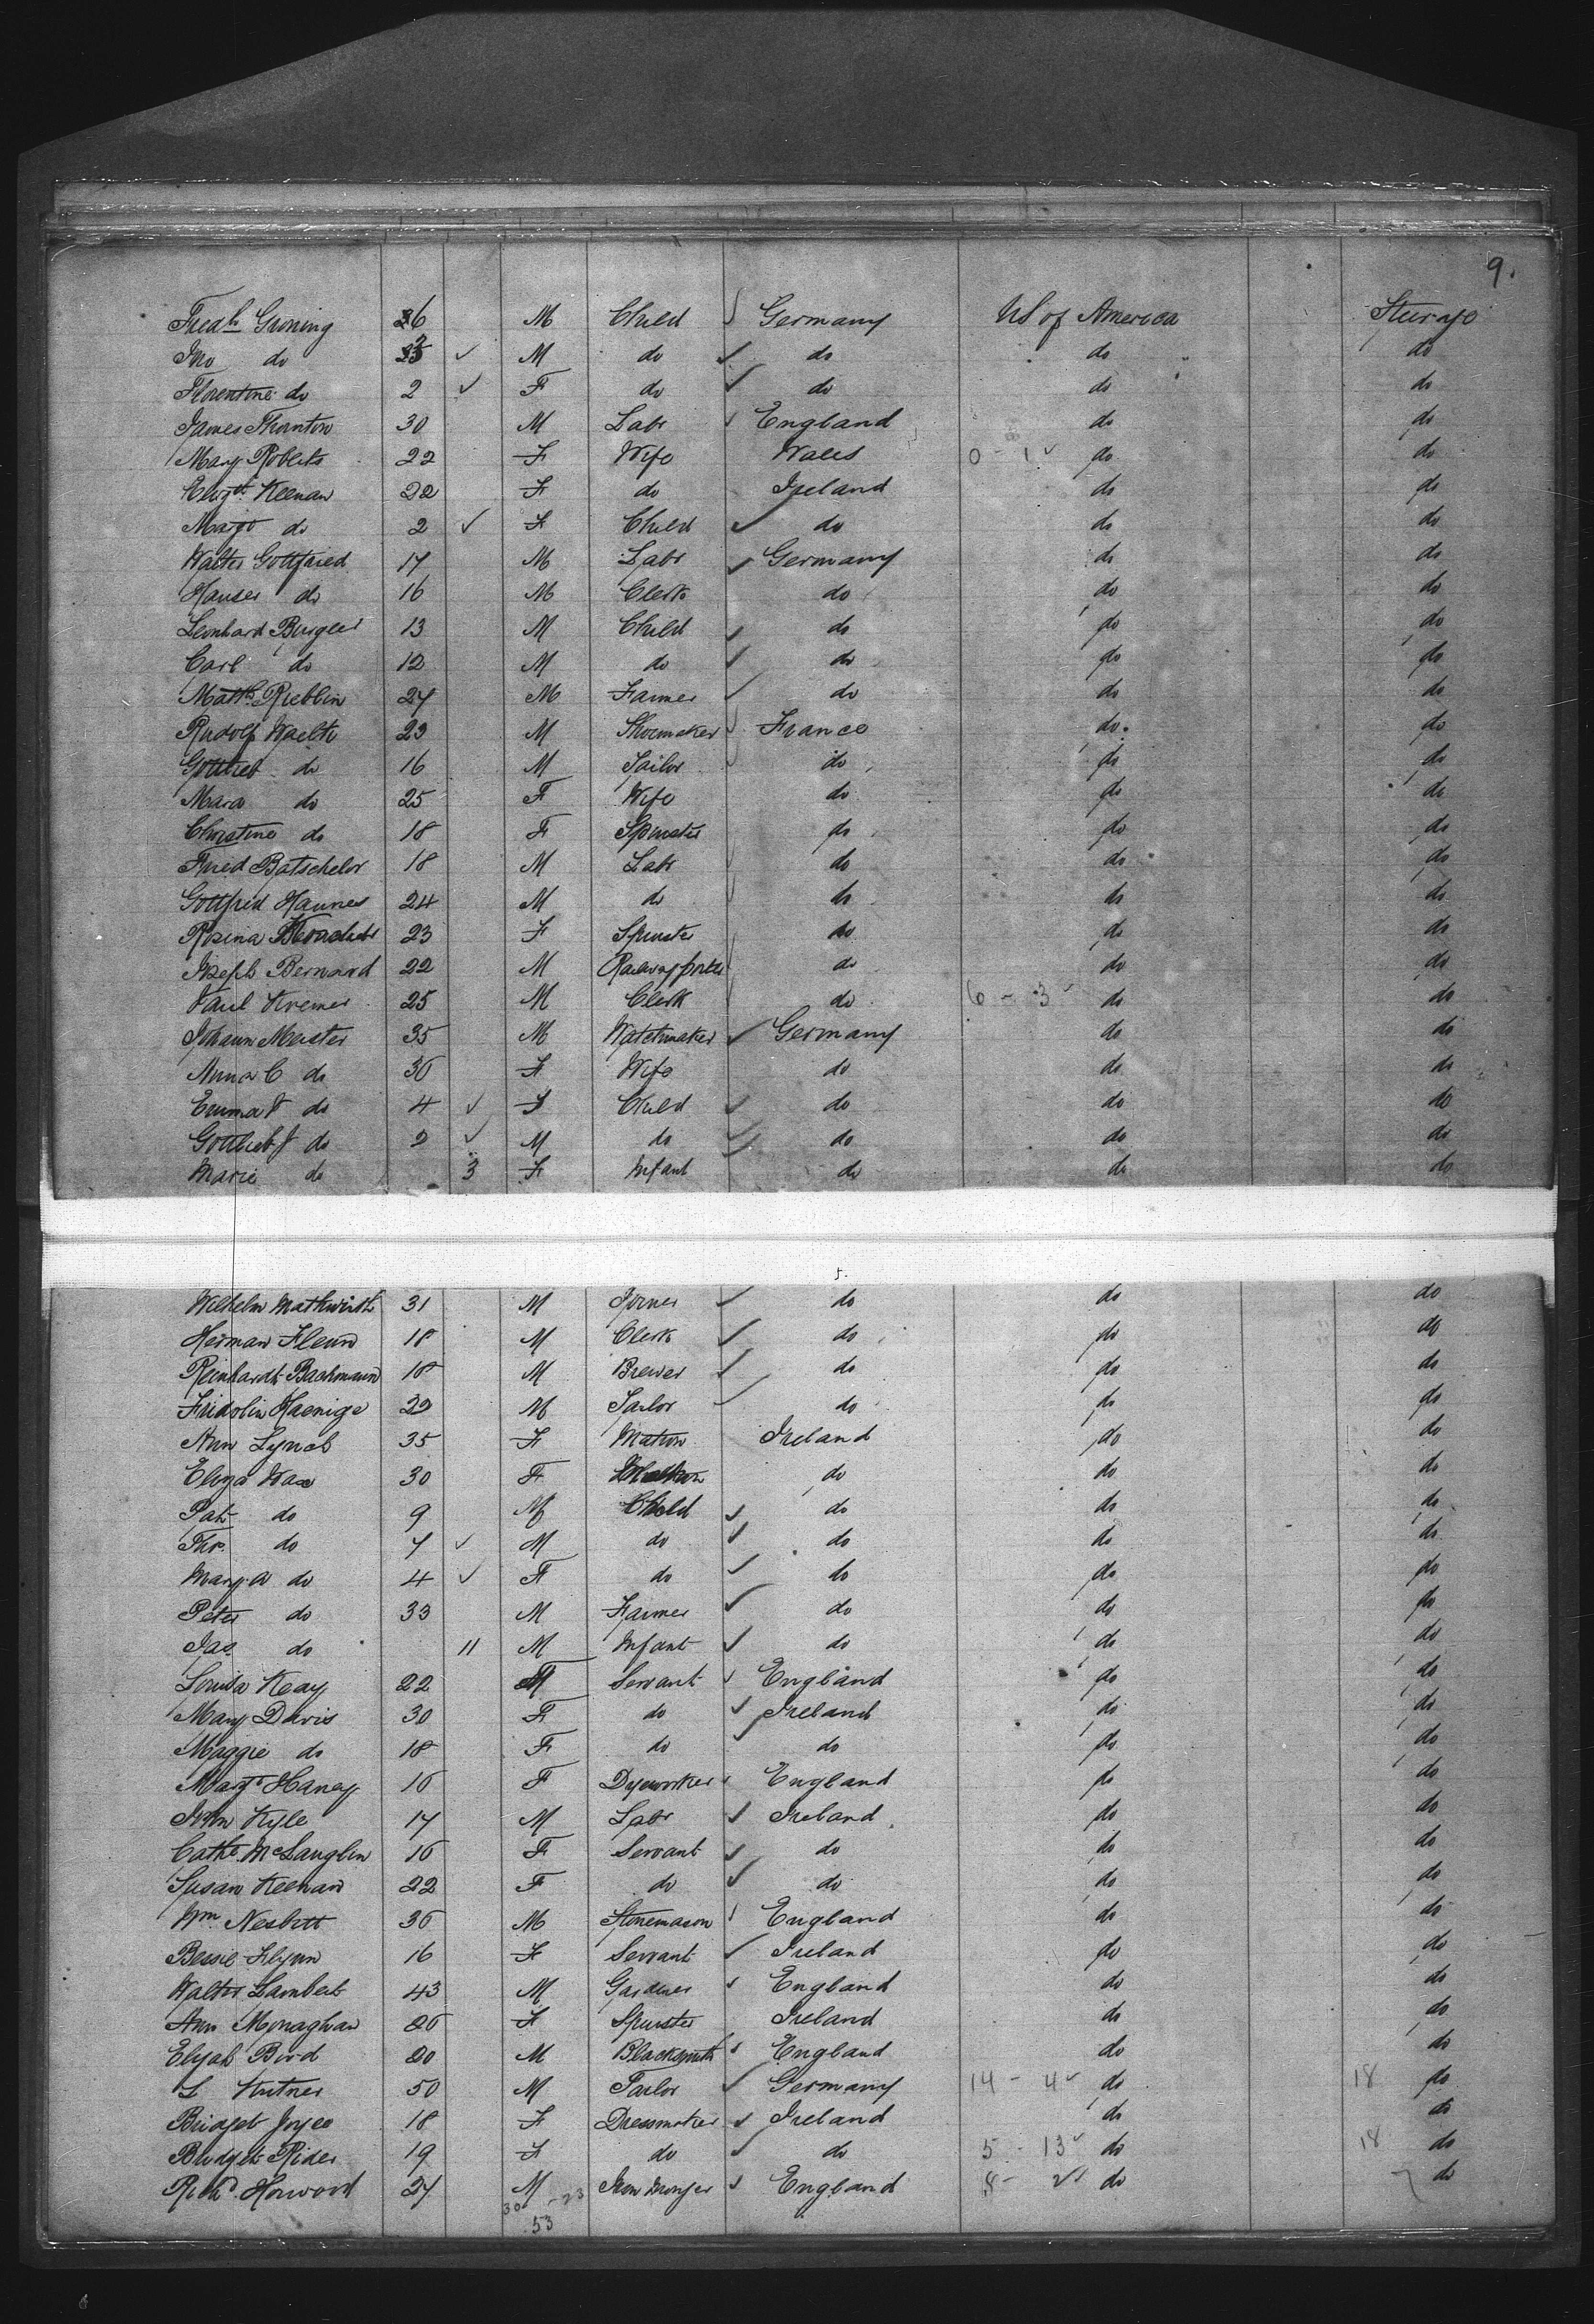 9.
Fredk Groning 6 M Child Germany US of America Steerage
Jno do M do do do do
Florentine do 2 F do do do do
James Thornton 30 M Labr England do do
Mary Roberts 22 F Wife Wales 0 - 1 do do
Elizth Keenan 22 F do Ireland do do
Margt do 2 F Child do do do
Walter Gottfried 17 M Labr Germany do do
Hauser do 16 M Clerk do do do
Leonhard Burgler 13 M Child do do do
Carl do 12 M do do do do
Maths Rieblin 27 M Farmer do do do
Rudolf Waelti 23 M Shoemaker France do do
Gottlieb do 16 M Tailor do do do
Mara do 25 F Wife do do do
Christine do 18 F Spinster do do do
Fried Batschelor 18 M Labr do do do
Gottfried Haunes 24 M do do do do
Rosina 23 F Spinster do do do
Joseph Bernard 22 M Railway porter do do do
Paul Kremer 25 M Clerk do 6 - 3 do do
Johann Meister 35 M Watchmaker Germany do do
Anna C do 36 F Wife do do do
Emma do 4 F Child do do do
Gottlieb J do 2 M do do do do
Marie do 3 F Infant do do do
Wilhelm Mathwirth 31 M Joiner do do do
Herman 18 M Clerk do do do
Reinhardt Bachmann 18 M Brewer do do do
Fridolin Haenige 29 M Tailor do do do
Ann Lynch 35 F Matron Ireland do do
Eliza 30 F Matron do do do
Pat do 9 M Child do do do
Thos do 7 M do do do do
Mary A do 4 F do do do do
Peter do 33 M Farmer do do do
Jas do 11 M Infant do do do
Louisa Keay 22 F Servant England do do
Mary Davis 30 F do Ireland do do
Maggie do 18 F do do do do
Margt Haney 16 F Dyeworker England do do
John Kyle 17 M Labr Ireland do do
Cathe McLauglin 16 F Servant do do do
Susan Keenan 22 F do do do do
Wm Nesbitt 36 M Stonemason England do do
Bessie Flynn 16 F Servant Ireland do do
Walter Lambert 43 M Gardener England do do
Ann Monaghan 26 F Spinster Ireland do do
Elijah Bird 20 M Blacksmith England do do
L Kutner 50 M Tailor Germany 14 - 4 do 18 do
Bridget Joyce 18 F Dressmaker Ireland do do
Bridget Rider 19 F do do 5 - 13 do 18 do
Richd Horwood 27 M Iron Monger England 8 - 2 do do
30 - 23
53